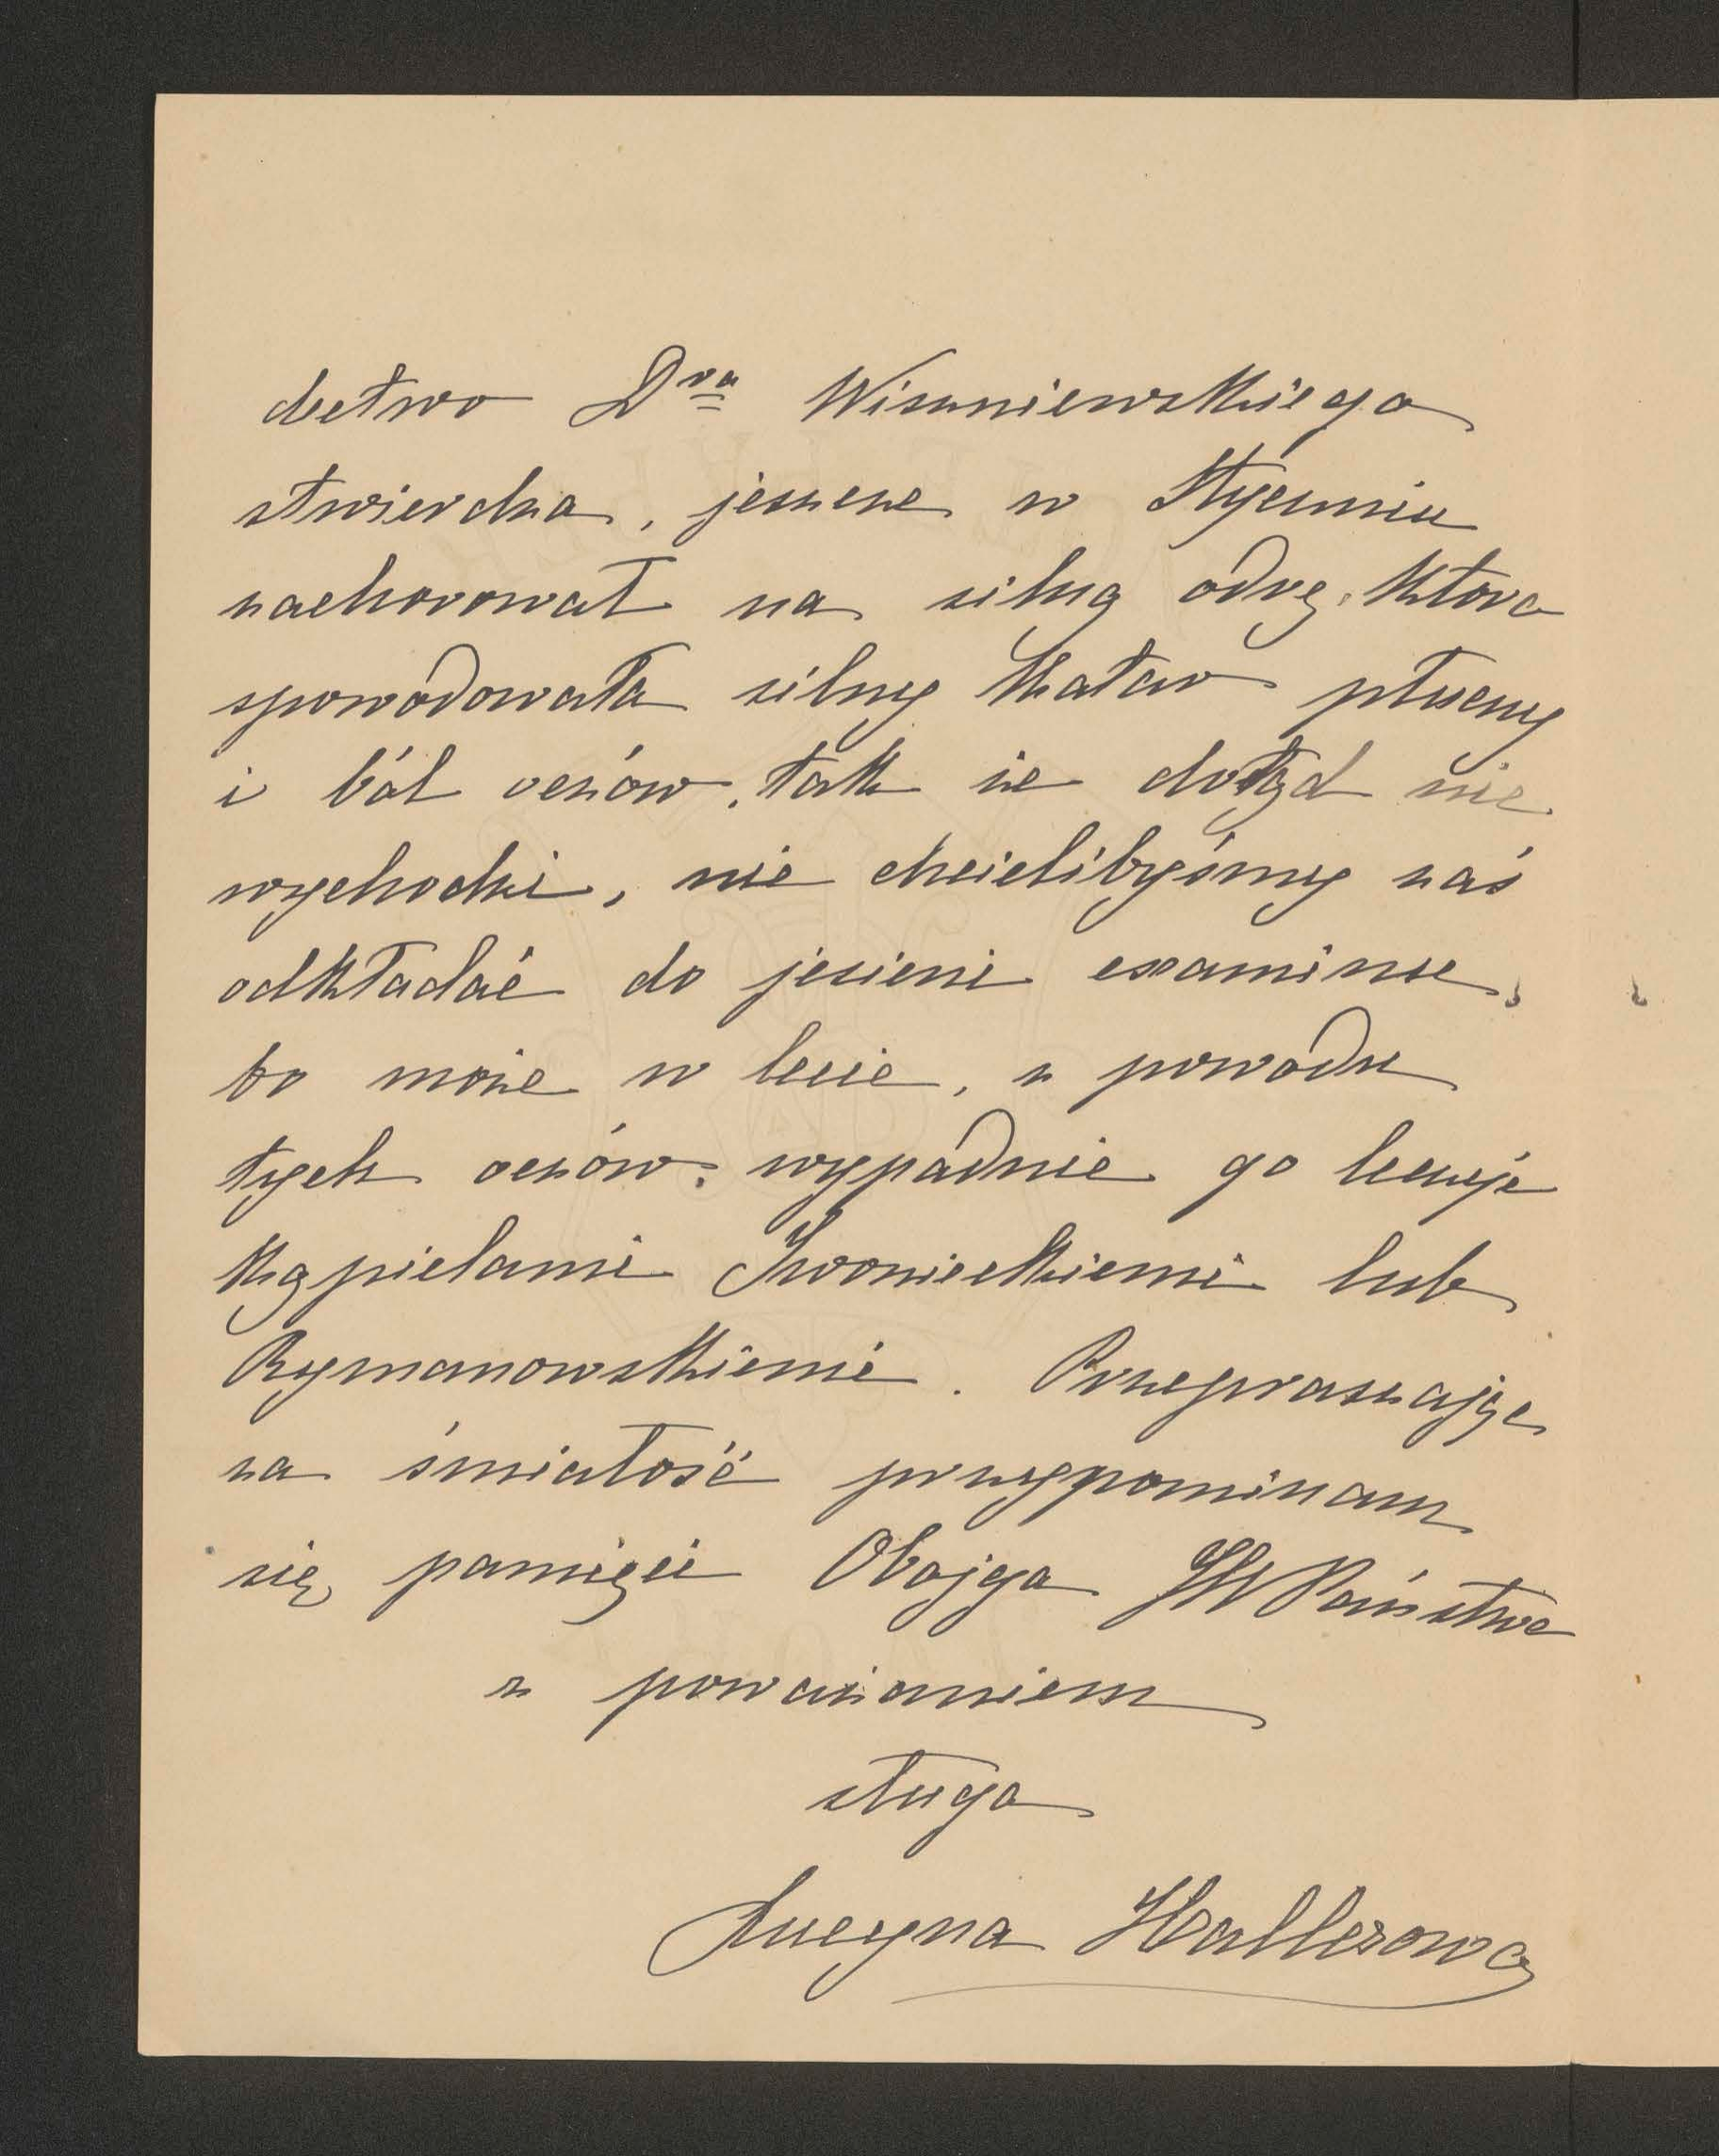 dectwo Dra Wiszniewskiego
stwierdza, jeszcze w Styczniu
zachorował na silną odrę, która
spowodowała silny katar płucny
i ból oczów, tak że dotąd nie
wychodzi, nie chcielibyśmy zaś
odkładać do jesieni examinu,
bo może w lecie, z powodu
tych oczów, wypadnie go leczyć
kąpielami Iwonickiemi lub
Rymanowskiemi. Przepraszając
za śmiałość przypominam
się pamięci Obojga JW Państwa
z poważaniem
sługa
Lucyna Hallerowa